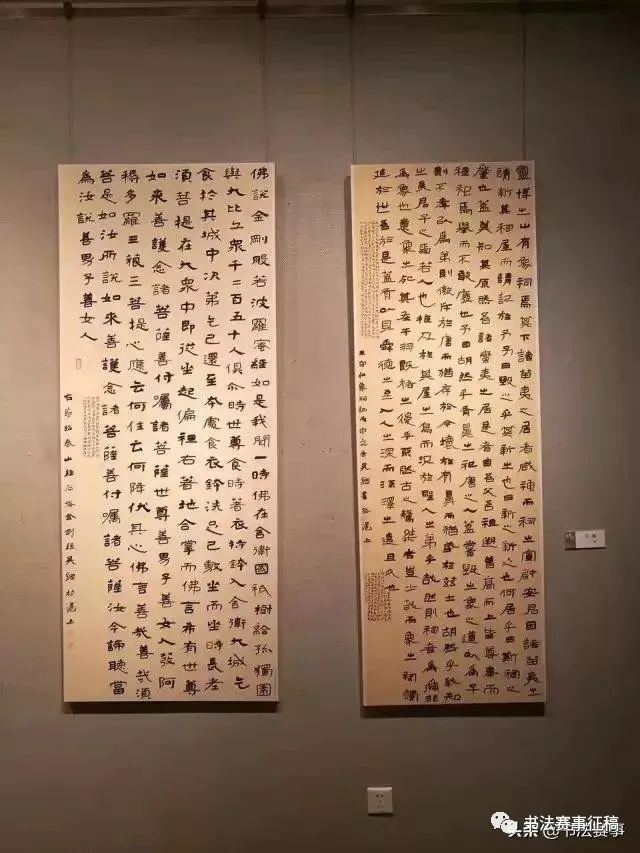 靈博之山有象祠焉其下諸苗夷之居者咸神而祠之宣尉安君因諸苗夷之
請新其祠屋而請記於予予曰毀之乎其新之也曰新之新之也何居乎曰斯祠之
肇也蓋莫知其原然吾諸蠻夷之居是者自吾父吾祖遡曾高而上皆尊奉而
禋祀焉舉而不敢廢也予曰胡然乎有鼻之祀唐之人蓋嘗毀之象之道以為子
則不孝以為弟則傲斥於唐而猶存於今壞於有鼻而猶盛於茲土也胡然乎我知
之矣君子之愛若人也推及於其屋之烏而況於聖人之弟乎哉然則祠者為舜非
為象也意象之死其在干羽既格之後乎不然古之驁桀者豈少哉而象之祠獨
延於世吾於是蓋有以見舜德之至入人之深而流澤之遠且久也
王守仁象祠記 書於滬上
佛說金剛般若波羅蜜經如是我聞一時佛在舍衛國祇樹給孤獨園
與大比丘眾千二百五十人俱尒時世尊食時著衣持鉢入舍衛大城乞
食於其城中次弟乞已還至本處食衣鉢洗足已敷坐而坐時長老
須菩提在大眾中即從坐起偏袒右著地合掌而佛言希有世尊
如來善護念諸菩薩善付囑諸菩薩世尊善男子善女人發阿
耨多羅三藐三菩提心應云何住云何降伏其心佛言善哉善哉須
菩提如汝所說如來善護念諸菩薩善付囑諸菩薩汝今諦聽當
為汝說善男子善女人
右節臨泰山經石峪金剛經 於滬上
书法赛事征稿
头条@书法赛事